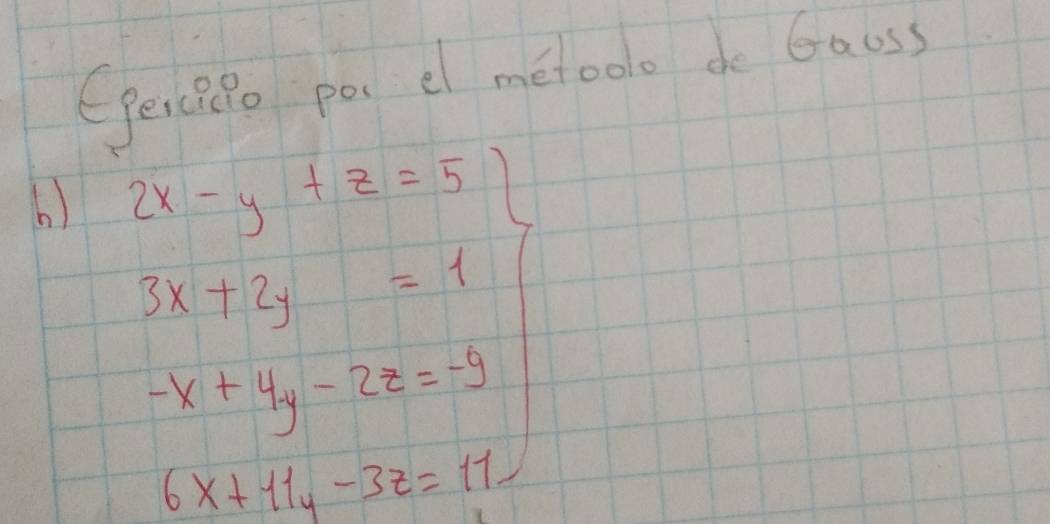 Ejercicio por el método de Gauss
h) 2x - y + z = 5
3x + 2y = 1
-x + 4y - 2z = -9
6x + 11y - 3z = 11